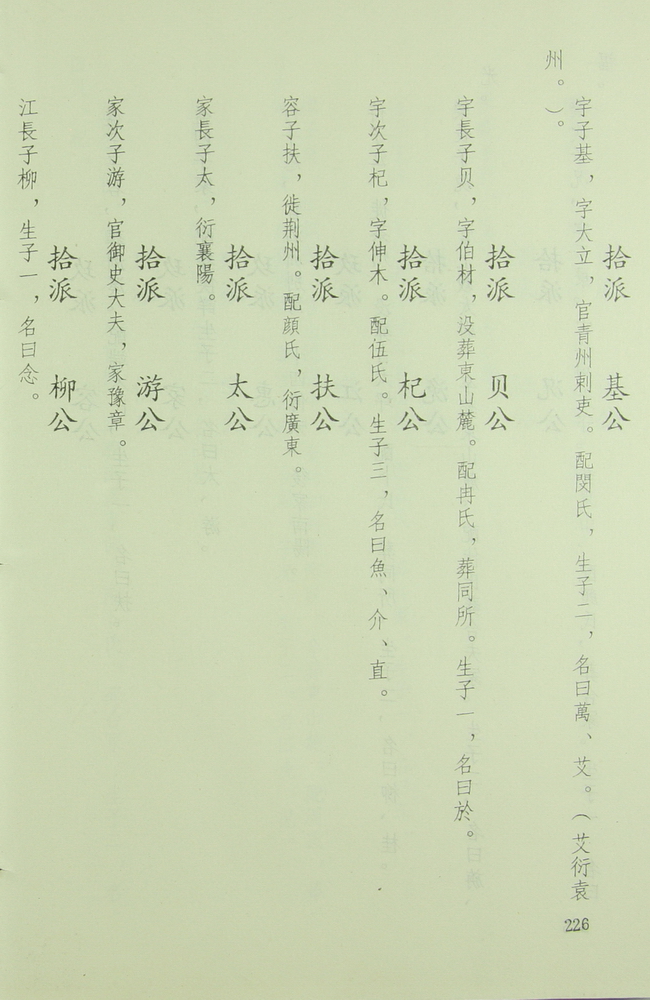 拾派 基公
宇子基，字大立，官青州刺吏。配閔氏，生子二，名曰萬、艾。（艾衍袁
州。）。
拾派 贝公
宇長子贝，字伯材，没葬東山麓。配冉氏，葬同所。生子一，名曰於。
拾派 杞公
宇次子杞，字伸木。配伍氏。生子三，名曰魚、介、直。
拾派 扶公
容子扶，徙荆州。配顔氏，衍廣東。
拾派 太公
家長子太，衍襄陽。
拾派 游公
家次子游，官御史大夫，家豫章。
拾派 柳公
江長子柳，生子一，名曰念。
226